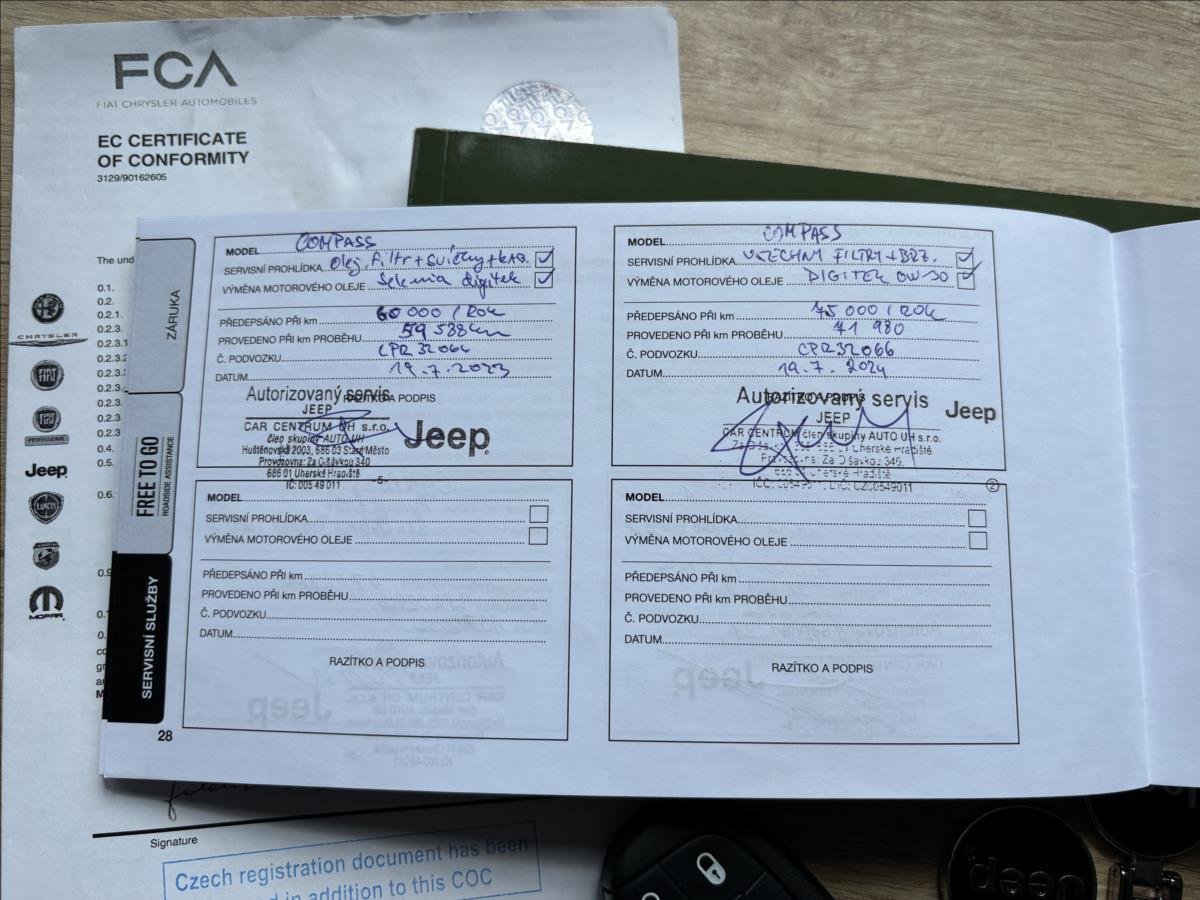 FCA
FIAT CHRYSLER AUTOMOBILES
EC CERTIFICATE
OF CONFORMITY
3129/90162605
The und
0.1.
0.2.
0.2.1.
0.2.3.
0.2.3.1
0.2.3.2
0.2.3.
0.2.3.
0.2.3
0.2.3
0.4.
0.5.
0.6.
CHRYSLER
FIAT
FIAT
PROFESSIONAL
Jeep
LANCIA
MOPAR
ZÁRUKA
FREE TO GO
ROADSIDE ASSISTANCE
SERVISNÍ SLUŽBY
28
MODEL COMPASS
SERVISNÍ PROHLÍDKA olej, filtr + svíčky +
VÝMĚNA MOTOROVÉHO OLEJE Selenia digitek
PŘEDEPSÁNO PŘI km 60 000 / ROK
PROVEDENO PŘI km PROBĚHU 59 538 km
Č. PODVOZKU CPR32066
DATUM 19.7.2023
RAZÍTKO A PODPIS
Autorizovaný servis
JEEP
CAR CENTRUM UH s.r.o.
člen skupiny AUTO UH
Huštěnovská 2003, 686 03 Staré Město
Provozovna: Za Olšávkou 340
686 01 Uherské Hradiště
IČ: 005 49 011
-5-
Jeep
MODEL COMPASS
SERVISNÍ PROHLÍDKA VŠECHNY FILTRY + BRZ.
VÝMĚNA MOTOROVÉHO OLEJE DIGITEK 0W-30
PŘEDEPSÁNO PŘI km 75 000 / ROK
PROVEDENO PŘI km PROBĚHU 71 980
Č. PODVOZKU CPR32066
DATUM 19.7.2024
RAZÍTKO A PODPIS
Autorizovaný servis
JEEP
CAR CENTRUM člen skupiny AUTO UH s.r.o.
Provozovna: Za Olšávkou 340,
686 01 Uherské Hradiště
DIČ: CZ00549011
2
Jeep
MODEL
SERVISNÍ PROHLÍDKA
VÝMĚNA MOTOROVÉHO OLEJE
PŘEDEPSÁNO PŘI km
PROVEDENO PŘI km PROBĚHU
Č. PODVOZKU
DATUM
RAZÍTKO A PODPIS
MODEL
SERVISNÍ PROHLÍDKA
VÝMĚNA MOTOROVÉHO OLEJE
PŘEDEPSÁNO PŘI km
PROVEDENO PŘI km PROBĚHU
Č. PODVOZKU
DATUM
RAZÍTKO A PODPIS
Signature
Czech registration document has been
in addition to this COC
Jeep